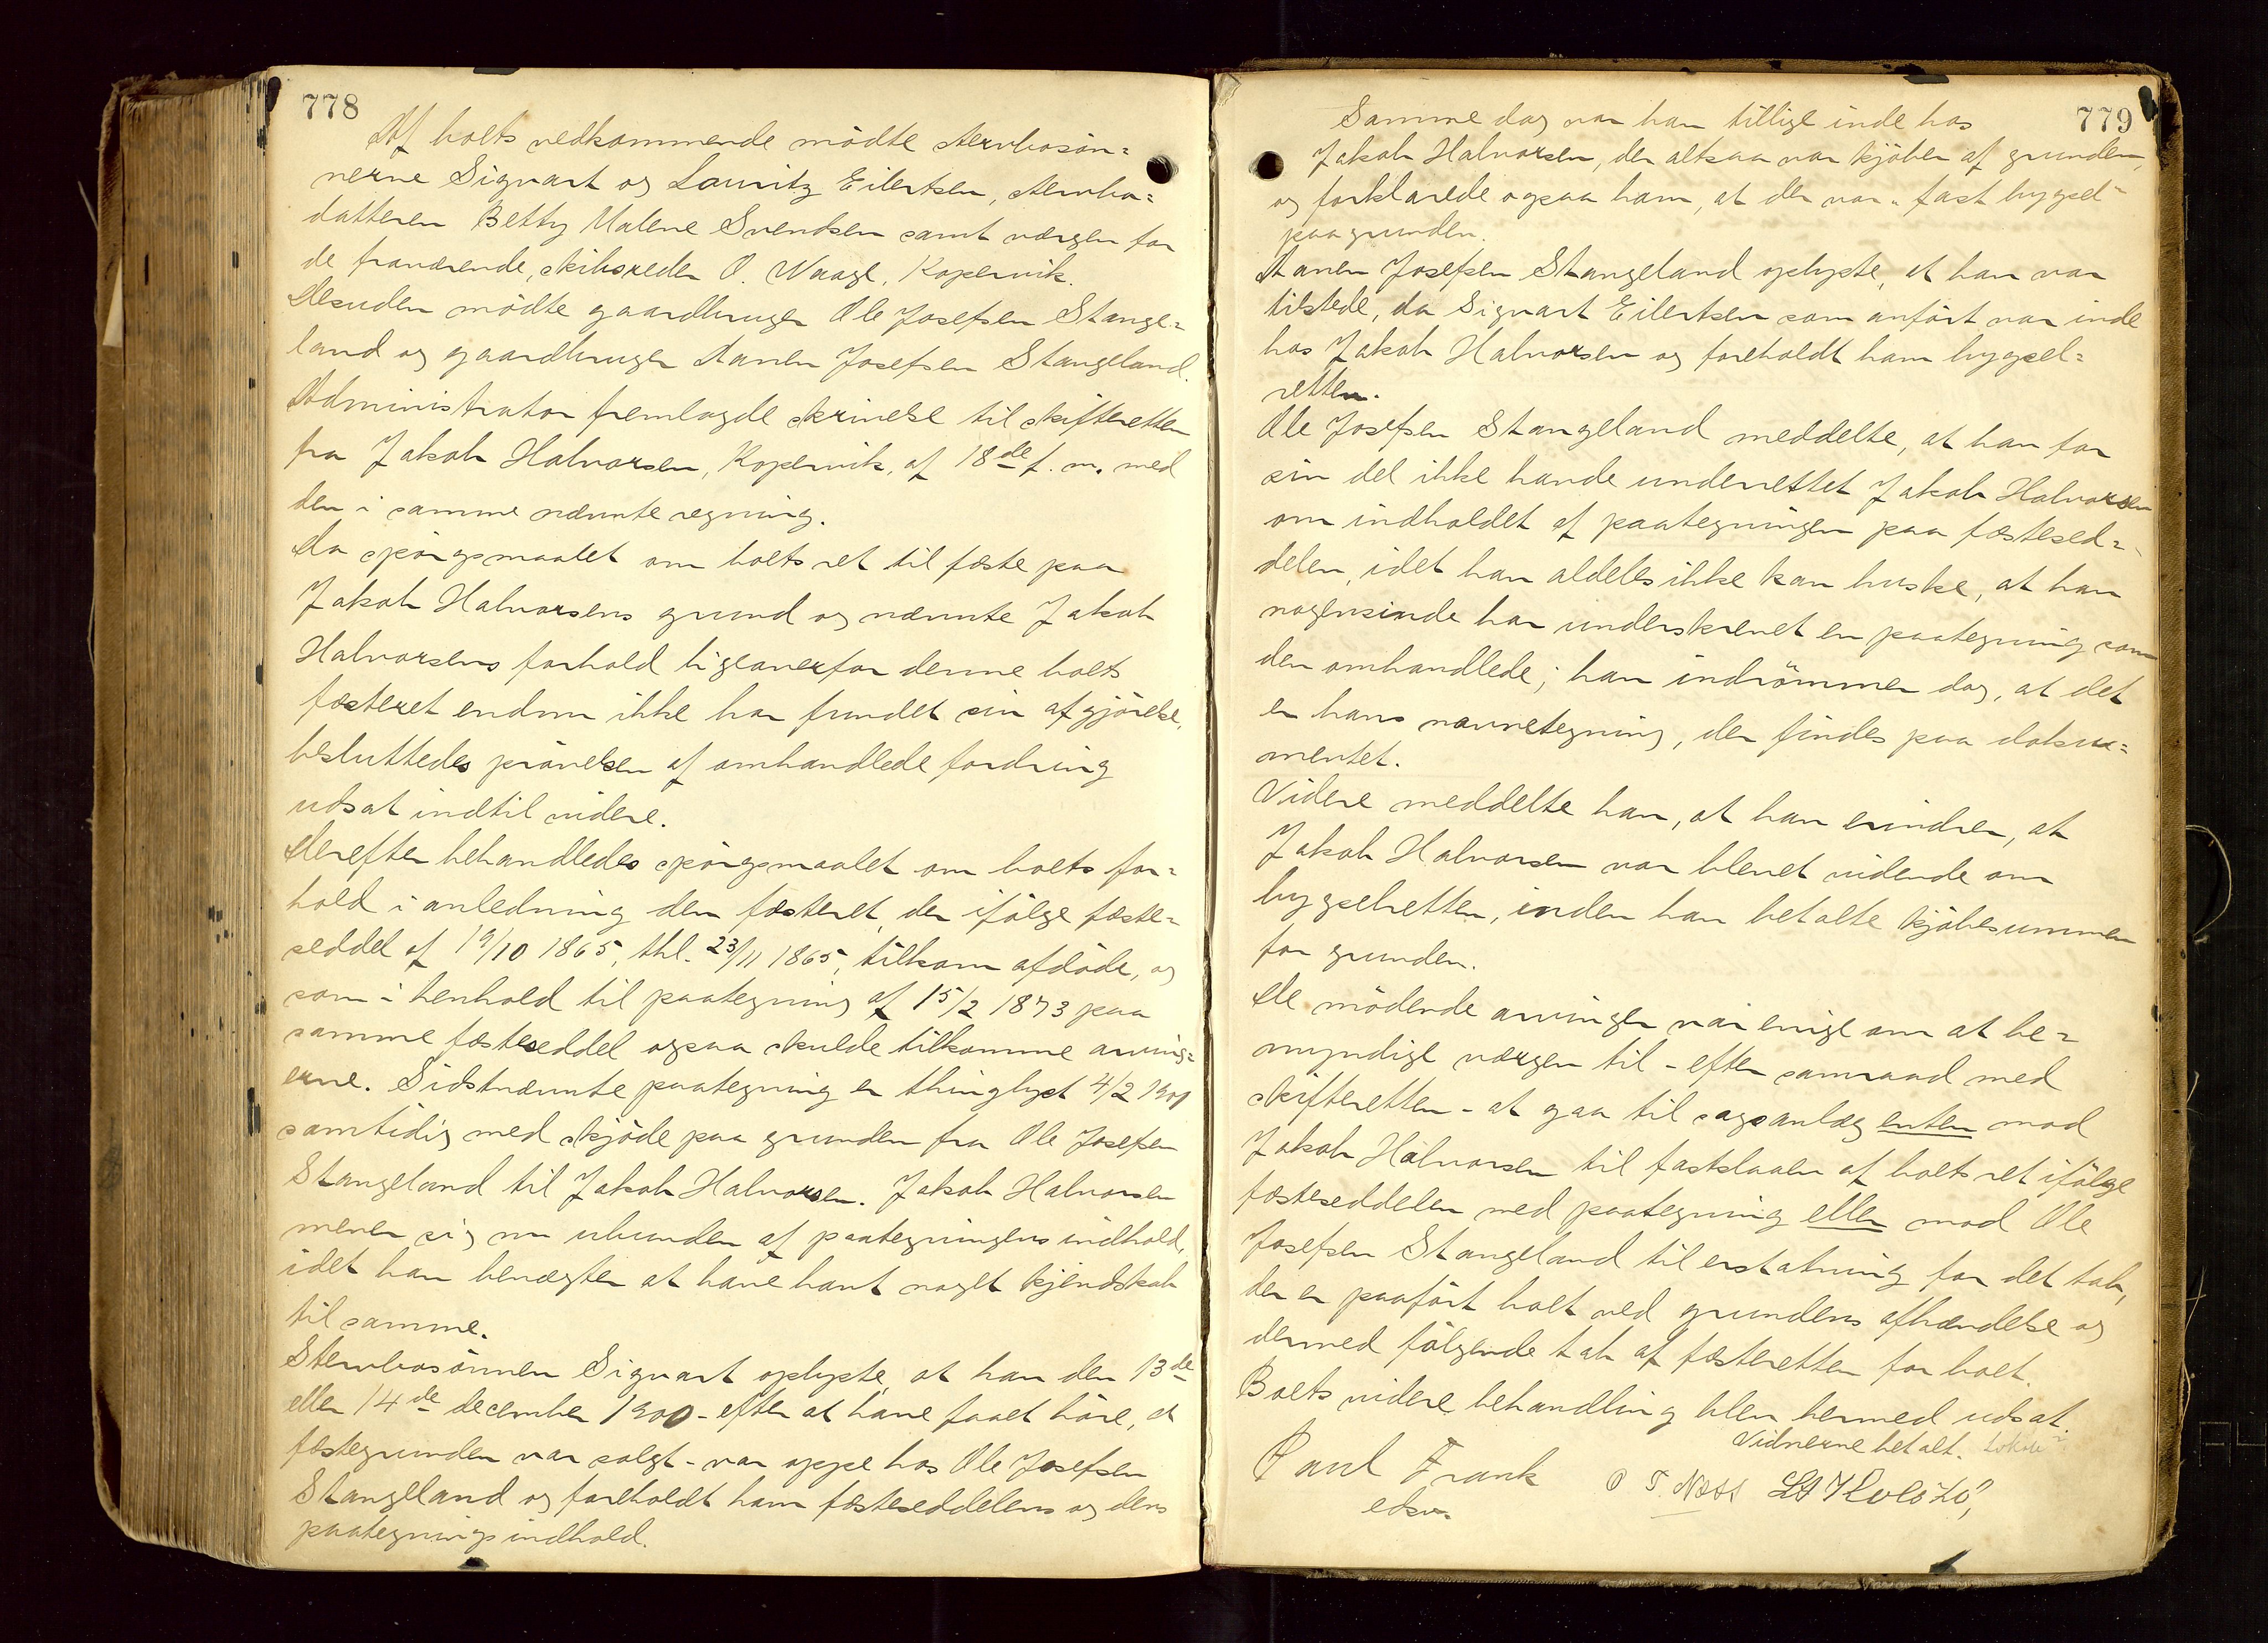 778
Af boets vedkommende mödte stervbosön=
nerne Sigvart og Lauritz Eilertsen, stervbo=
datteren Betty Malene Svendsen samt værgen for
de fraværende, skibsreder O. Waage, Kopervik.
Desuden mödte gaardbruger Ole Josefsen Stange=
land og gaardbruger Aanen Josefsen Stangeland.
Administrator fremlagde skrivelse til skifteretten
fra Jakob Halvorsen, Kopervik, af 18de f. m. med
den i samme nævnte regning.
Da spörgsmaalet om boets ret til fæste paa
Jakob Halvorsens grund og nævnte Jakob
Halvorsens forhold ligeoverfor denne boets
fæsteret endnu ikke har fundet sin afgjörelse,
besluttedes prövelsen af omhandlede fordring
udsat indtil videre.
Derefter behandledes spörgsmaalet om boets for=
hold i anledning den fæsteret, der ifölge fæste=
seddel af 19/10 1865, thl. 23/11 1865, tilkom afdöde, og
som i henhold til paategning af 15/2 1873 paa
samme fæsteseddel ogsaa skulde tilkomme arving=
erne. Sidstnævnte paategning er thinglyst 4/2 1901
samtidig med skjöde paa grunden fra Ole Josefsen
Stangeland til Jakob Halvorsen. Jakob Halvorsen
mener sig nu ubunden af paategningens indhold,
idet han benægter at have havt noget kjendskab
til samme.
Stervbosönnen Sigvart oplyste, at han den 13de
eller 14de december 1900 - efter at have faaet höre, at
fæstegrunden var solgt - var oppe hos Ole Josefsen
Stangeland og foreholdt ham fæsteseddelens og dens
paategnings indhold.
779
Samme dag var han tillige inde hos
Jakob Halvorsen, der altsaa var kjöber af grunden,
og forklarede ogsaa ham, at der var "fast bygsel"
paa grunden.
Aanen Josefsen Stangeland oplyste, at han var
tilstede, da Sigvart Eilertsen som anfört var inde
hos Jakob Halvorsen og foreholdt ham bygsel=
retten.
Ole Josefsen Stangeland meddelte, at han for
sin del ikke havde underrettet Jakob Halvorsen
om indholdet af paategningen paa fæstesed=
delen, idet han aldeles ikke kan huske, at han
nogensinde har underskrevet en paategning som
den omhandlede; han indrömmer dog, at det
er hans navnetegning, der findes paa doku=
mentet.
Videre meddelte han, at han erindrer, at
Jakob Halvorsen var blevet vidende om
bygselretten, inden han betalte kjöbesummen
for grunden.
De mödende arvinger var enige om at be=
myndige værgen til - efter samraad med
skifteretten - at gaa til sagsanlæg enten mod
Jakob Halvorsen til fastslaaen af boets ret ifölge
fæsteseddelen med paategning eller mod Ole
Josefsen Stangeland til erstatning for det tab,
der er paafört boet ved grundens afhændelse og
dermed fölgende tab af fæsteretten for boet.
Boets videre behandling blev hermed udsat.
Vidnerne betalt.
Paul Frank
edsv.
O T. Næss